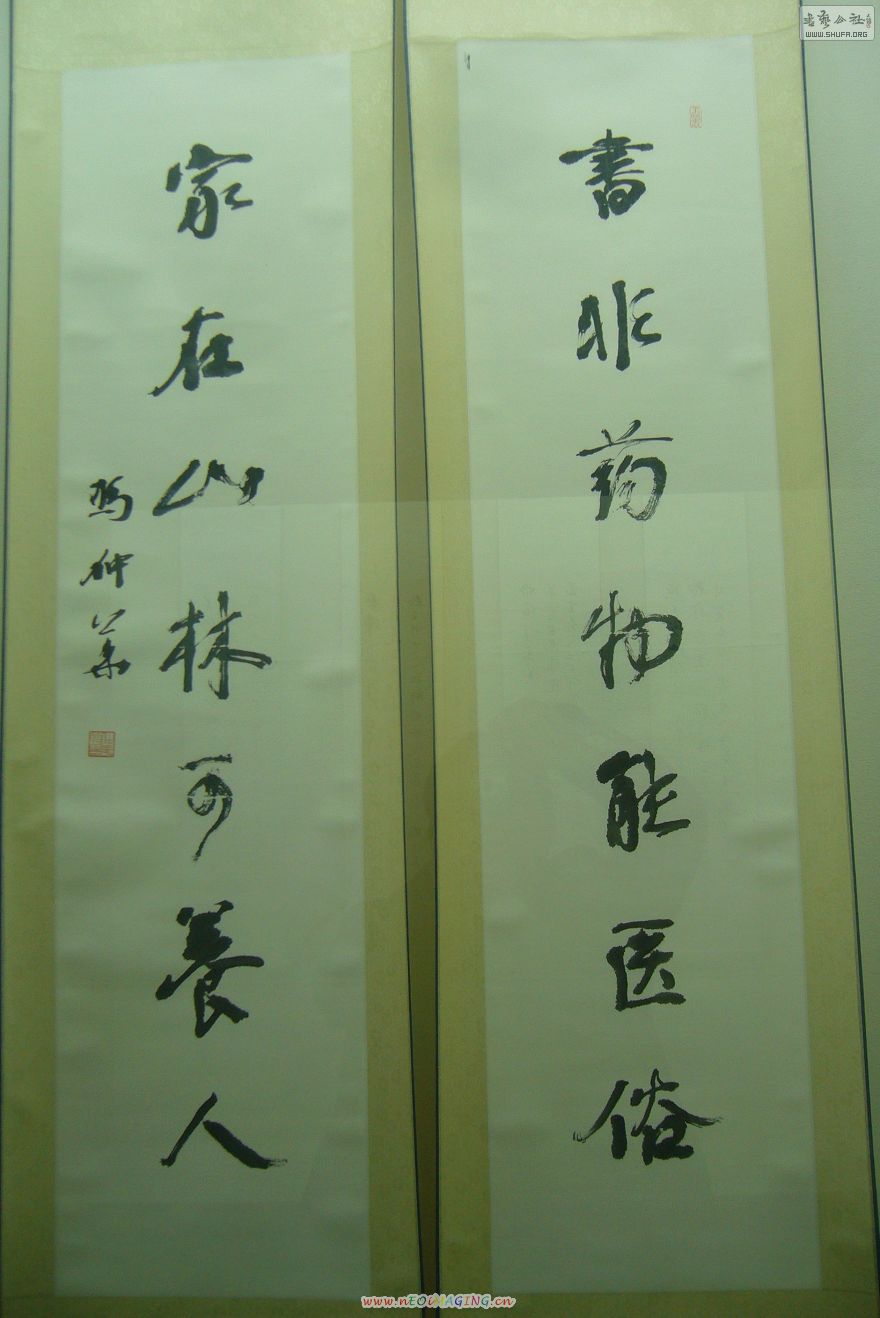 書非药物能医俗
家在山林可養人
书艺公社
WWW.SHUFA.ORG
www.nEOiMAGING.cn